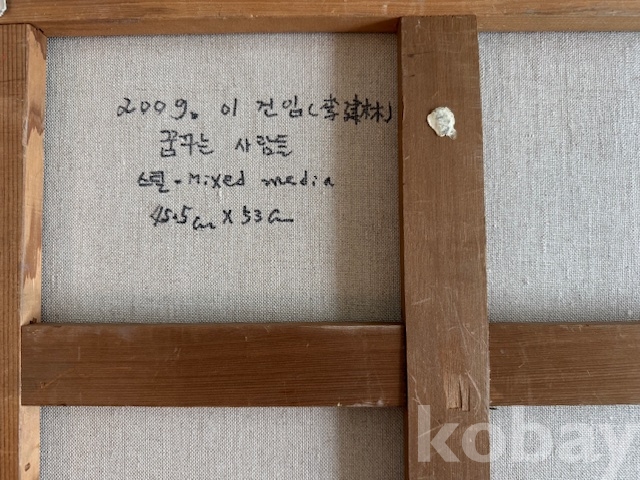 2009. 이건임(李建林)
꿈꾸는 사람들
스틸 - Mixed media
45.5cm X 53cm
kobay